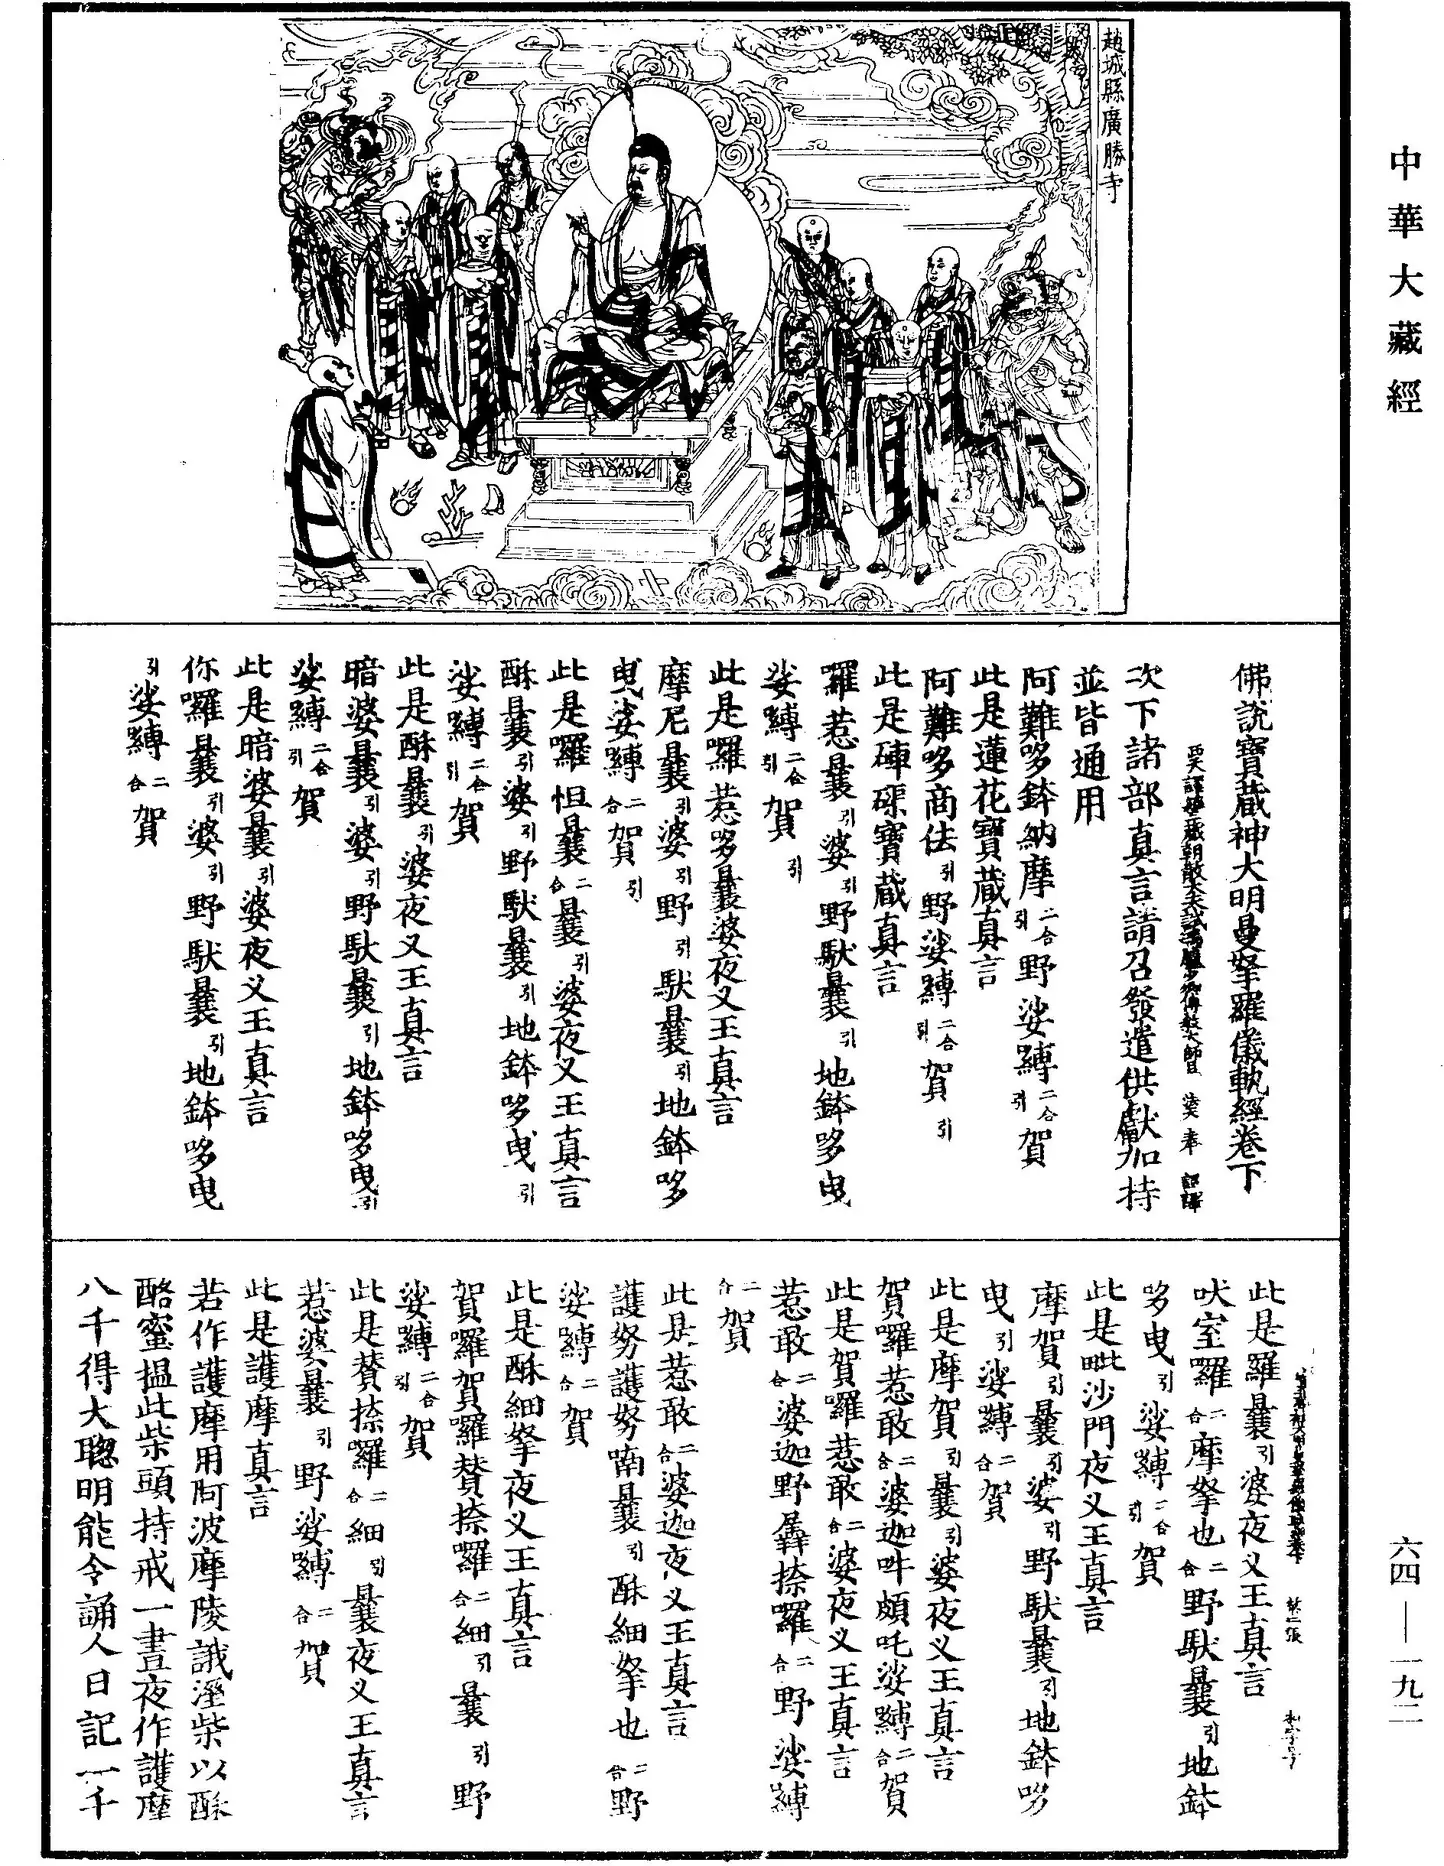 中華大藏經
趙城縣廣勝寺
佛說寶藏神大明曼拏羅儀軌經卷下
次下諸部真言請召發遣供獻加持
並皆通用
阿難哆鉢納摩引二合野娑嚩二合引賀
此是蓮花寶藏真言
阿難哆商佉引野娑嚩二合引賀引
此是硨磲寶藏真言
羅惹曩引婆引野馱曩引地鉢哆曳
娑嚩二合引賀引
此是囉惹哆曩婆夜叉王真言
摩尼曩引婆引野引馱曩引地鉢哆
曳娑嚩二合賀引
此是囉怛曩二合曩引婆夜叉王真言
酥曩引婆引野馱曩引地鉢哆曳引
娑嚩二合引賀
此是酥曩引婆夜叉王真言
暗婆曩引婆引野馱曩引地鉢哆曳引
娑嚩二合引賀
此是暗婆曩引婆夜叉王真言
你囉曩引婆引野馱曩引地鉢哆曳
引娑嚩二合賀
此是羅曩引婆夜叉王真言
吠室囉二合摩拏也二合野馱曩引地鉢
哆曳引娑嚩二合引賀
此是毗沙門夜叉王真言
摩賀引曩引婆引野馱曩引地鉢哆
曳引娑嚩二合賀
此是摩賀引曩引婆夜叉王真言
賀囉惹敢二合婆迦吽頗吒娑嚩二合賀
此是賀囉惹敢二合婆夜叉王真言
惹敢二合婆迦野彝捺囉二合野娑嚩
二合賀
此是惹敢二合婆迦夜叉王真言
護努護努喃曩引酥細拏也二合野
娑嚩二合賀
此是酥細拏夜叉王真言
賀囉賀囉賛捺囉二合細引曩引野
娑嚩二合引賀
此是賛捺囉二合細引曩夜叉王真言
惹婆曩引野娑嚩二合賀
此是護摩真言
若作護摩用阿波摩陵誐溼柴以酥
酪蜜搵此柴頭持戒一晝夜作護摩
八千得大聰明能令誦人日記一千
六四—一九二